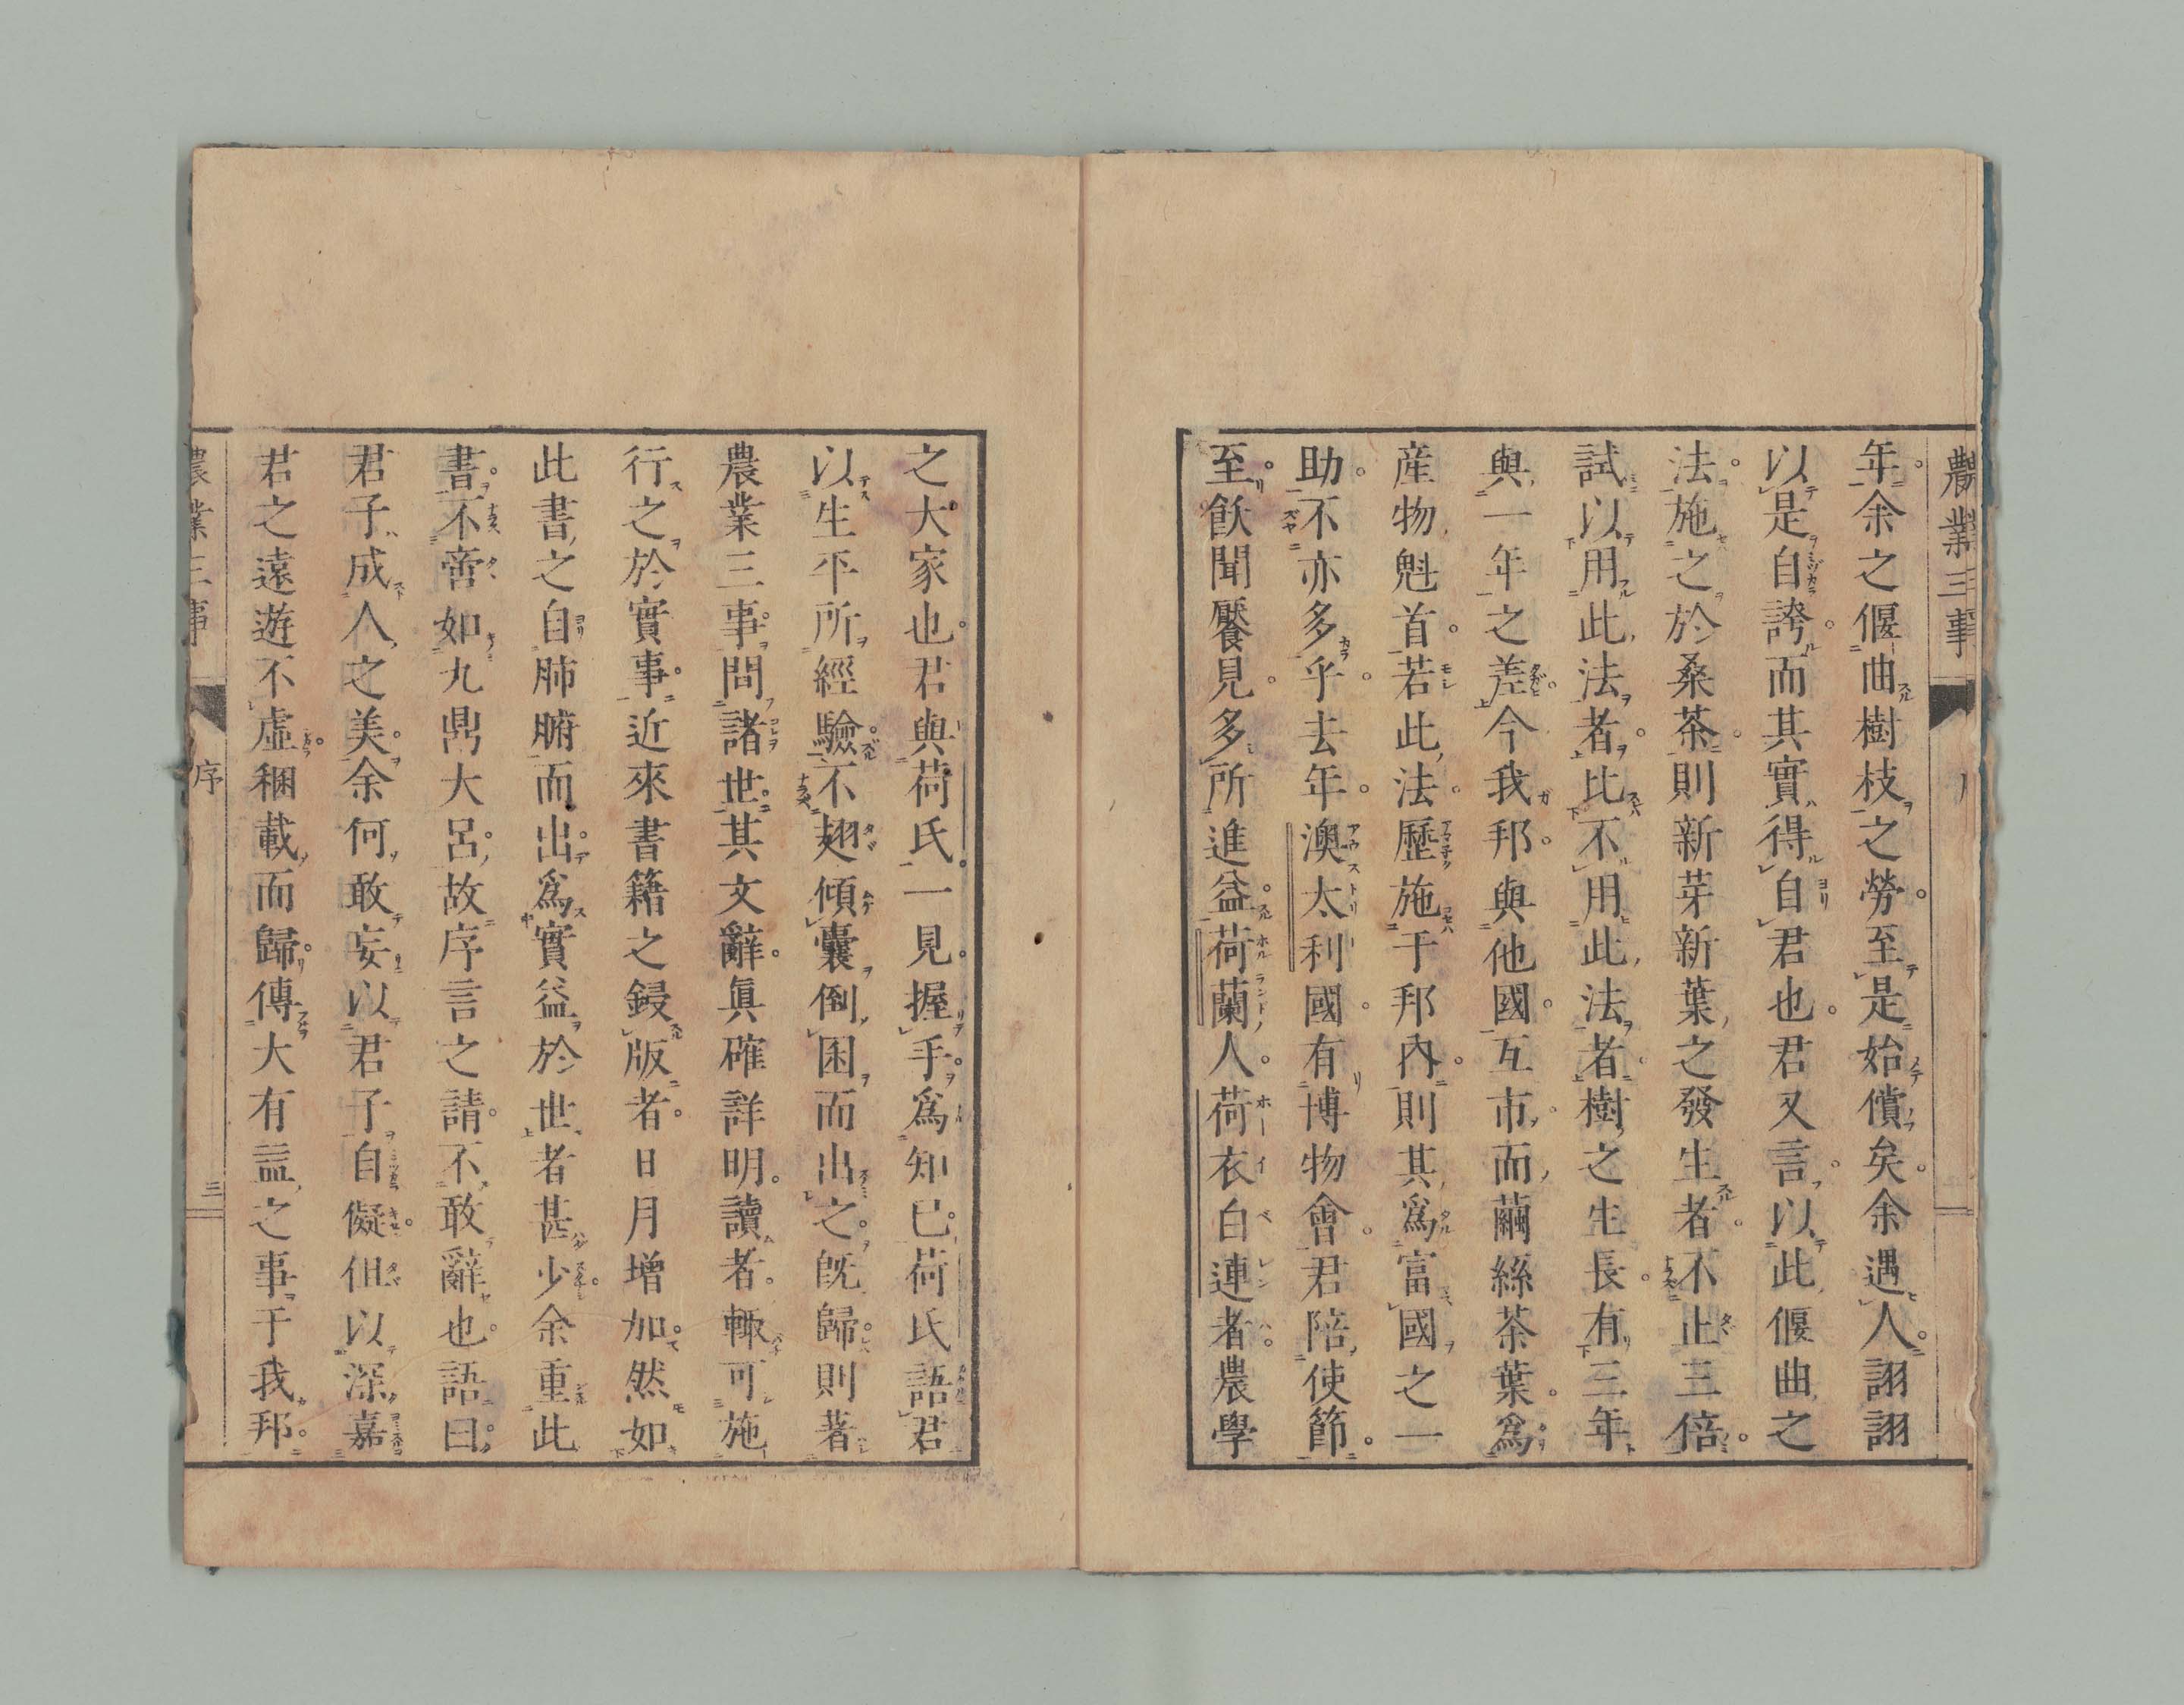 農業三事
年。余之偃曲樹枝之勞。至是始償矣。余遇人。詡詡
以是自誇。而其實得自君也。君又言。以此偃曲之
法。施之於桑茶。則新芽新葉之發生者。不止三倍。
試以用此法者。比不用此法者。樹之生長。有三年
與一年之差。今我邦。與他國。互市。而繭絲茶葉。爲
産物魁首。若此法。歷施于邦內。則其爲富國之一
助。不亦多乎。去年。澳太利國。有博物會。君陪使節。
至。飫聞饜見。多所進益。荷蘭人。荷衣白連者。農學
之大家也。君與荷氏。一見。握手。爲知已。荷氏語君
以生平所經驗。不翅傾囊倒囷而出之。既歸。則著
農業三事。問諸世。其文辭。眞確詳明。讀者。輙可施
行之於實事。近來書籍之鋟版者。日月增加。然如
此書之自肺腑而出。爲實益於世者甚少。余重此
書。不啻如九鼎大呂。故序言之請。不敢辭也。語曰。
君子成人之美。余何敢妄以君子自儗。但以深嘉
君之遠遊不虛。稛載而歸。傳大有益之事于我邦。
農業三事
序
三